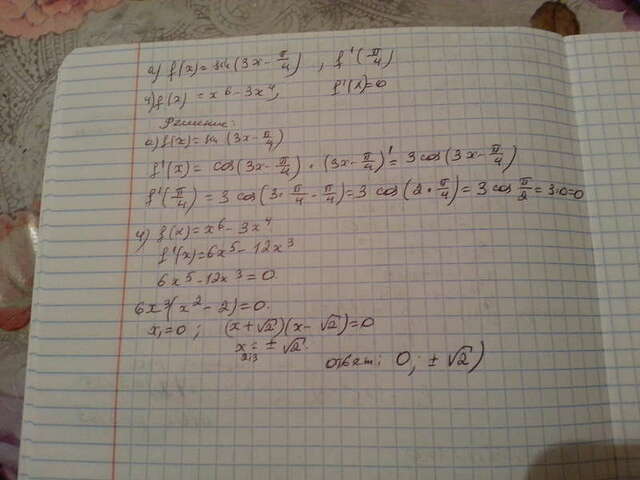 а) f(x) = sin(3x - π/4), f'(π/4)
ч) f(x) = x⁶ - 3x⁴, f'(x)=0
Решение:
а) f(x) = sin(3x - π/4)
f'(x) = cos(3x - π/4) · (3x - π/4)' = 3cos(3x - π/4)
f'(π/4) = 3cos(3·π/4 - π/4) = 3cos(2·π/4) = 3cos π/2 = 3·0=0
ч) f(x) = x⁶ - 3x⁴
f'(x) = 6x⁵ - 12x³
6x⁵ - 12x³ = 0
6x³(x² - 2) = 0.
x₁ = 0; (x+√2)(x-√2) = 0
x₂;₃ = ±√2.
ответ: 0; ±√2)